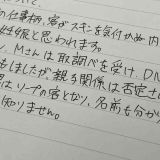 の仕事柄、客がスキンを気付かぬ内
妊娠と思われます。
、Mさんは取調べを受け、DN
もしましたが、親子関係は否定さ
はソープの客となり、名前も分か
知りません。